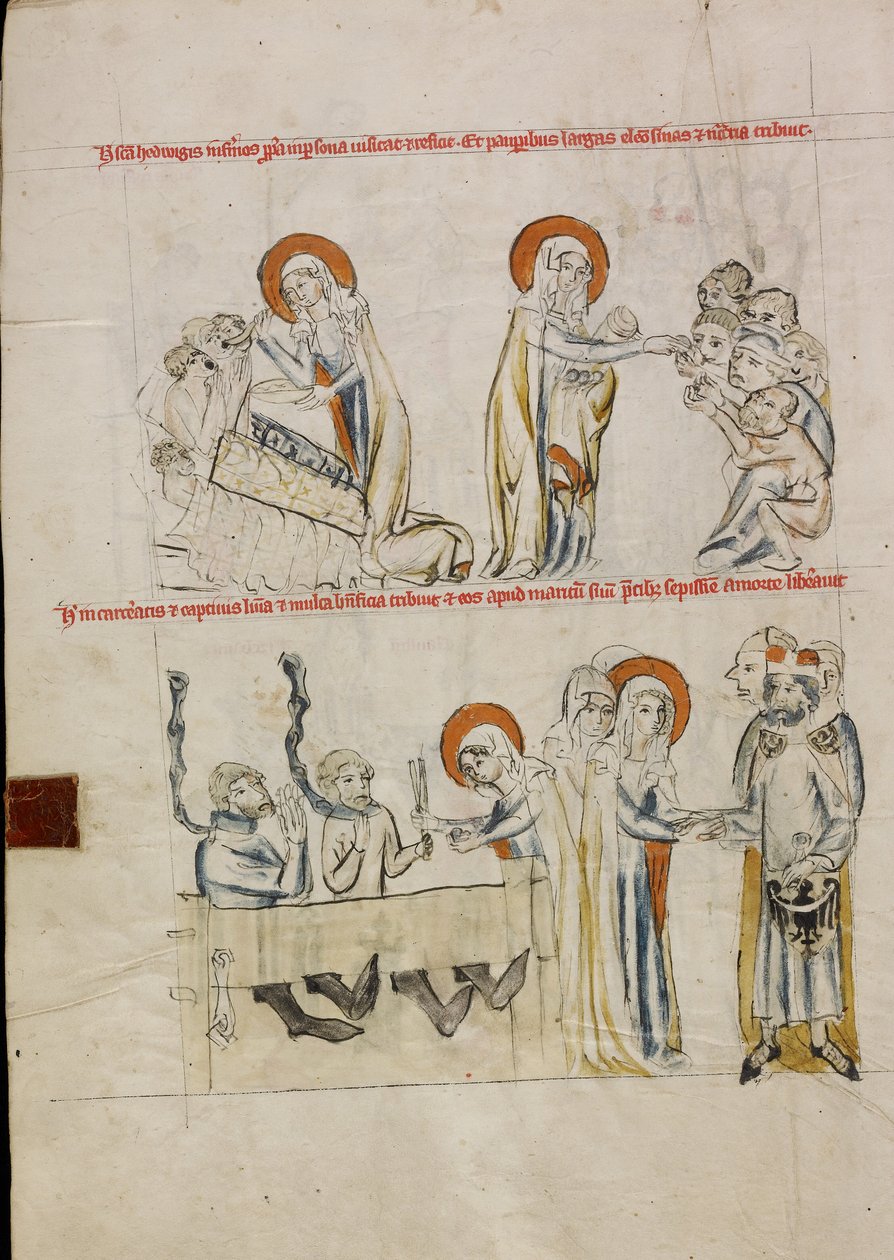 Hic sca hedwigis infirmos ppa in psona uisitat ⁊ reficit · Et paupibus largas eleosinas ⁊ tribuit ·
Hic in carceratis ⁊ captiuis ⁊ multa bnficia tribuit ⁊ eos apud maritu suu pcibꝫ sepissme a morte liberauit